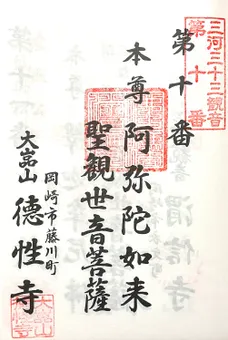 三河三十三観音
第十番
第十番
本尊 阿弥陀如来
聖観世音菩薩
岡崎市藤川町
大嵓山 徳性寺